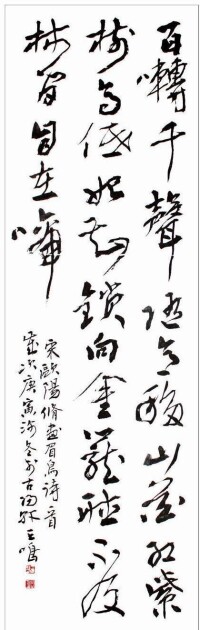 百囀千聲随意移山花红紫
樹高低始知鎖向金籠聽不及
林間自在啼
宋歐陽脩畫眉鳥詩一首
歲次庚寅初冬於古